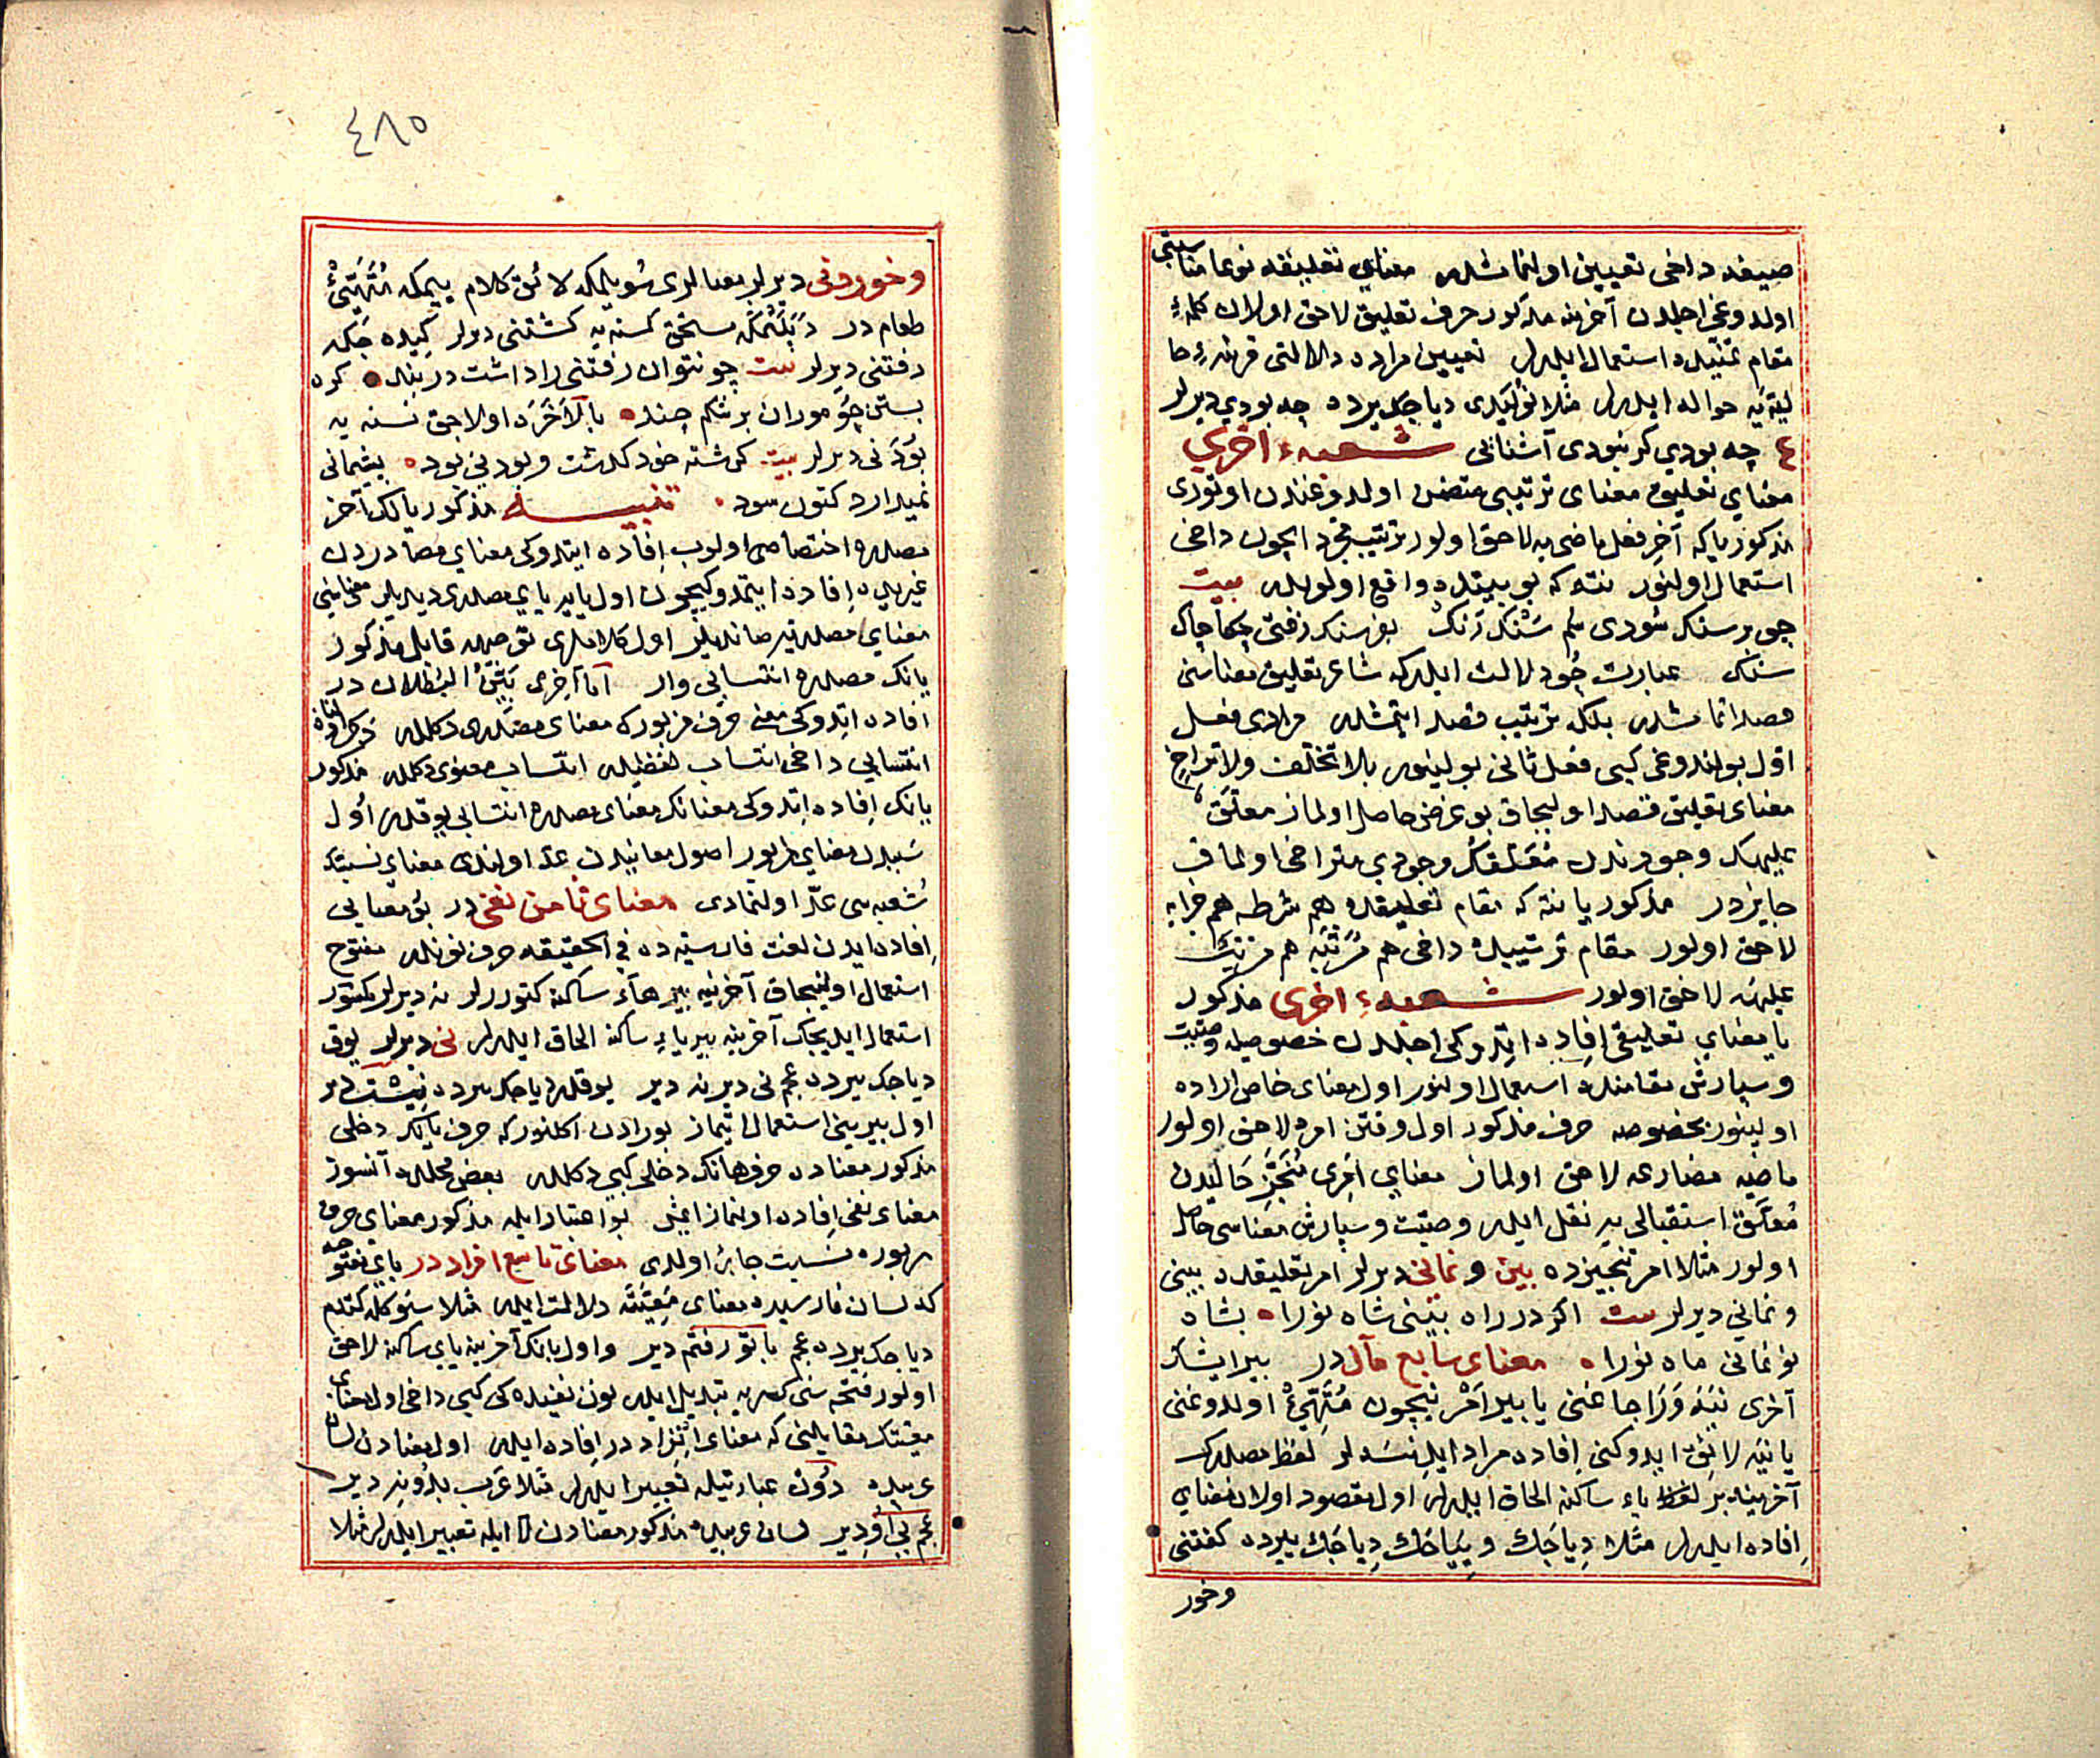 صیغه داخی تعیین اولنمامشدر معنای تعلیقه نوعا مناسبتی
اولدوغی اجلدن آخرینه مذکور حرف تعلیق لاحق اولان کلمهٔ
مقام تمنیده استعمال ایدرلر تعیین مراده دلالتی قرینهٔ حا
لیه‌یه حواله ایدرلر مثلا نولیدی دیاجک یرده چه بودی دیرلر
ع چه بودی کر نبودی آشنائی شعبهٔ اخری
معنای تعلیق معنای ترتیبی متضمن اولدوغندن اوتوری
مذکور یا که آخر فعل ماضی‌یه لاحق اولور ترتیب مجرد ایچون داخی
استعمال اولنور نته که بو بیتده واقع اولوبدر بیت
چو بر سنک سودی سم سنک رنک بفرسنک رفتی چکاچاک
سنک عبارت خود دلالت ایدر که شاعر تعلیق معناسنی
قصد اتمامشدر بلکه ترتیب قصد ایتمشدر مرادی فعل
اول بولندوغی کبی فعل ثانی بولینور بلا تخلف ولا تراخ
معنای تعلیق قصد اولیجاق بو غرض حاصل اولماز معلق
علیهک وجودندن معلقک وجودی متراخی اولماق
جایزدر مذکور یا نته که مقام تعلیقده هم شرطه هم جزایه
لاحق اولور مقام ترتیبده داخی هم مرتبه هم مرتب
علیه‌یه لاحق اولور شعبهٔ اخری مذکور
یا معنای تعلیقی افاده اتدوکی اجلدن خصوصیله وصیت
وسپارش مقامنده استعمال اولنور اول معنای خاص اراده
اولینور بخصوصه حرف مذکور اول وقتن امره لاحق اولور
ماضیه مضارعه لاحق اولماز معنای امری منجز حالیدن
معلق استقبالی‌یه نقل ایدر وصیت وسپارش معناسی حاصل
اولور مثلا امر تنجیزده بین و نمای دیرلر امر تعلیقده بینی
ونمانی دیرلر بیت اکر در راه بینی شاه نورا بشاه
نو نمانی ماه نورا معنای سابع مآل در بیر ایشک
آخری نیه وراجاغنی یا بیر امر نیچون متهیئ اولدوغنی
یا نیه لائق ایدوکنی افاده مراد ایدنسه‌لر لفظ مصدرک
آخرینه بر یاء ساکنه الحاق ایدرلر اول مقصود اولان معنای
افاده ایدرلر مثلا دیاجک و ییاجک دیاجک یرده کفتنی
وخور
وخوردنی دیرلر معنالری سویلمکه لائق کلام ییمکه متهیئ
طعام در دپلنمکه مستحق کسنه‌یه کشتنی دیرلر کیده جکه
رفتنی دیرلر بیت چو نتوان رفتنی را داشت در بند کره
بستن چو موران بر شکم چند بالاخره اولاجق نسنه‌یه
بودنی دیرلر بیت کرشته خود کذشت و بودنی بود پشیمانی
نمیدارد کنون سود تنبیه مذکور یا لک آخر
مصدره اختصاصی اولوب افاده ایتدوکی معنای مصادردن
غیریده افاده ایتمدوکیچون اول یایه یای مصدری دیدیلر معناسنی
معنای مصدریه صاندیلر اول کلاملری توجیهه قابل مذکور
یانک مصدره انتسابی وار اما آخری بین البطلان در
افاده اتدوکی معنی حرف مزبورک معنای مصدری دکلدر
انتسابی داخی انتساب لفظیدر انتساب معنوی دکلدر مذکور
یانک افاده اتدوکی معنانک معنای مصدره انتسابی یوقدر اول
سببدن معنای مزبور اصول معانیدن عد اولندی معنای نسبتک
شعبه‌سی عد اولنمادی معنای ثامن نفی در بو معنایی
افاده ایدن لغت فارسیده فی الحقیقه حرف نوندر مفتوح
استعمال اولنیجاق آخرینه بیر هاء ساکنه کتوررلر نه دیرلر مکسور
استعمال ایدیجک آخرینه بیر یاء ساکنه الحاق ایدرلر نی دیرلر یوق
دیاجک یرده عجم نی دیر نه دیر یوقدر دیاجک یرده نیست دیر
اول بیرینی استعمال اتماز بورادن اکلنور که حرف یانک دخلی
مذکور معناده حرف هانک دخلی کبی دکلدر بعض محلده آنسوز
معنای نفی افاده اولنماز ایمش بو اعتبار ایله مذکور معنای حرف
مزبوره نسبت جائز اولدی معنای تاسع افراد در یای مفتوحه
که لسان فارسیده معنای معیته دلالت ایدر مثلا سنوکله کتدم
دیاجک یرده عجم با تو رفتم دیر واول یانک آخرینه یای ساکنه لاحق
اولور فتحه‌سنی کسریه تبدیل ایدر نون نفیده کی کبی داخی اول معنای
معیتک مقابلنی که معنای انفراد در افاده ایدر اول معنادن لسان
عربیده دون عبارتیله تعبیر ایدرلر مثلا عرب بدونه دیر
عجم بی او دیر لسان عربیده مذکور معنادن لا ایله تعبیر ایدرلر مثلا
٤٨٥